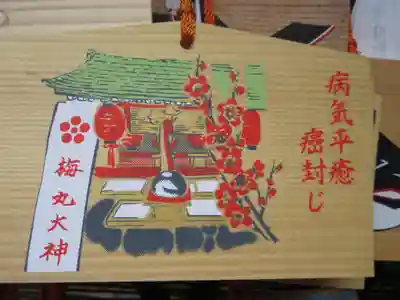 病氣平癒
癌封じ
梅丸大神